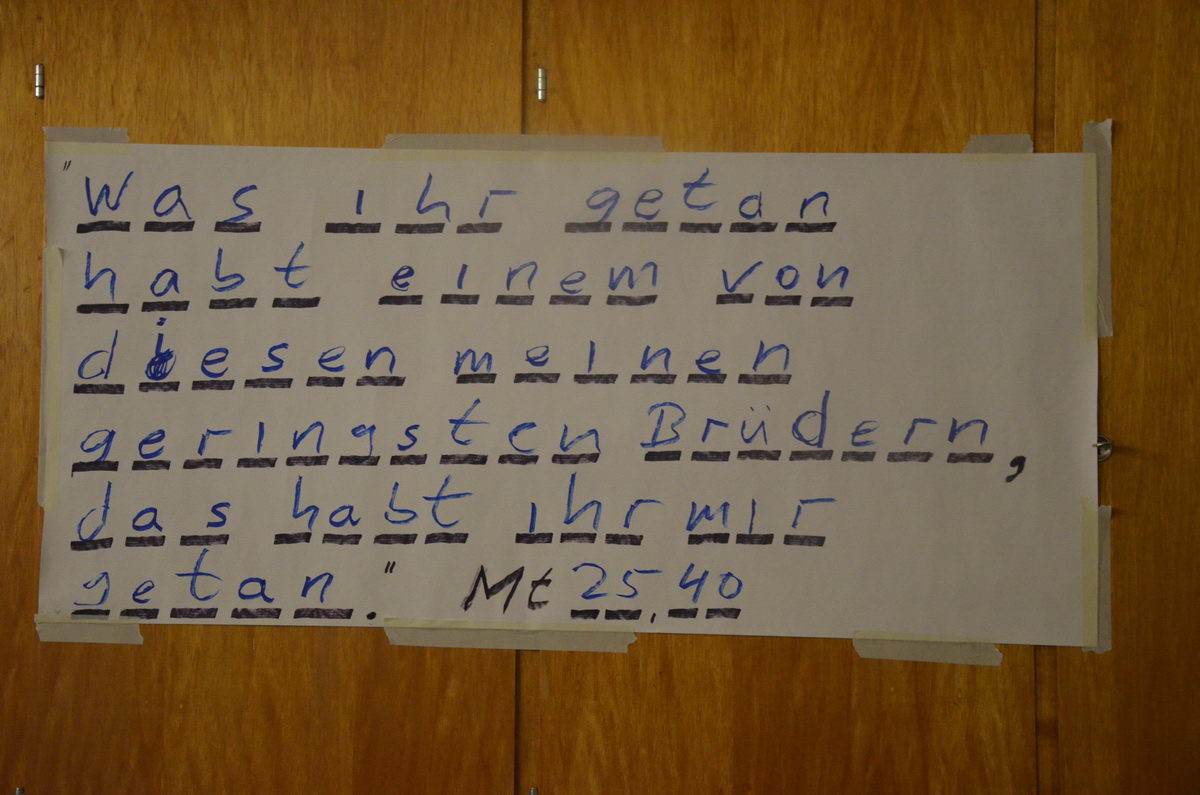 "Was ihr getan
habt einem von
diesen meinen
geringsten Brüdern,
das habt ihr mir
getan." Mt 25,40